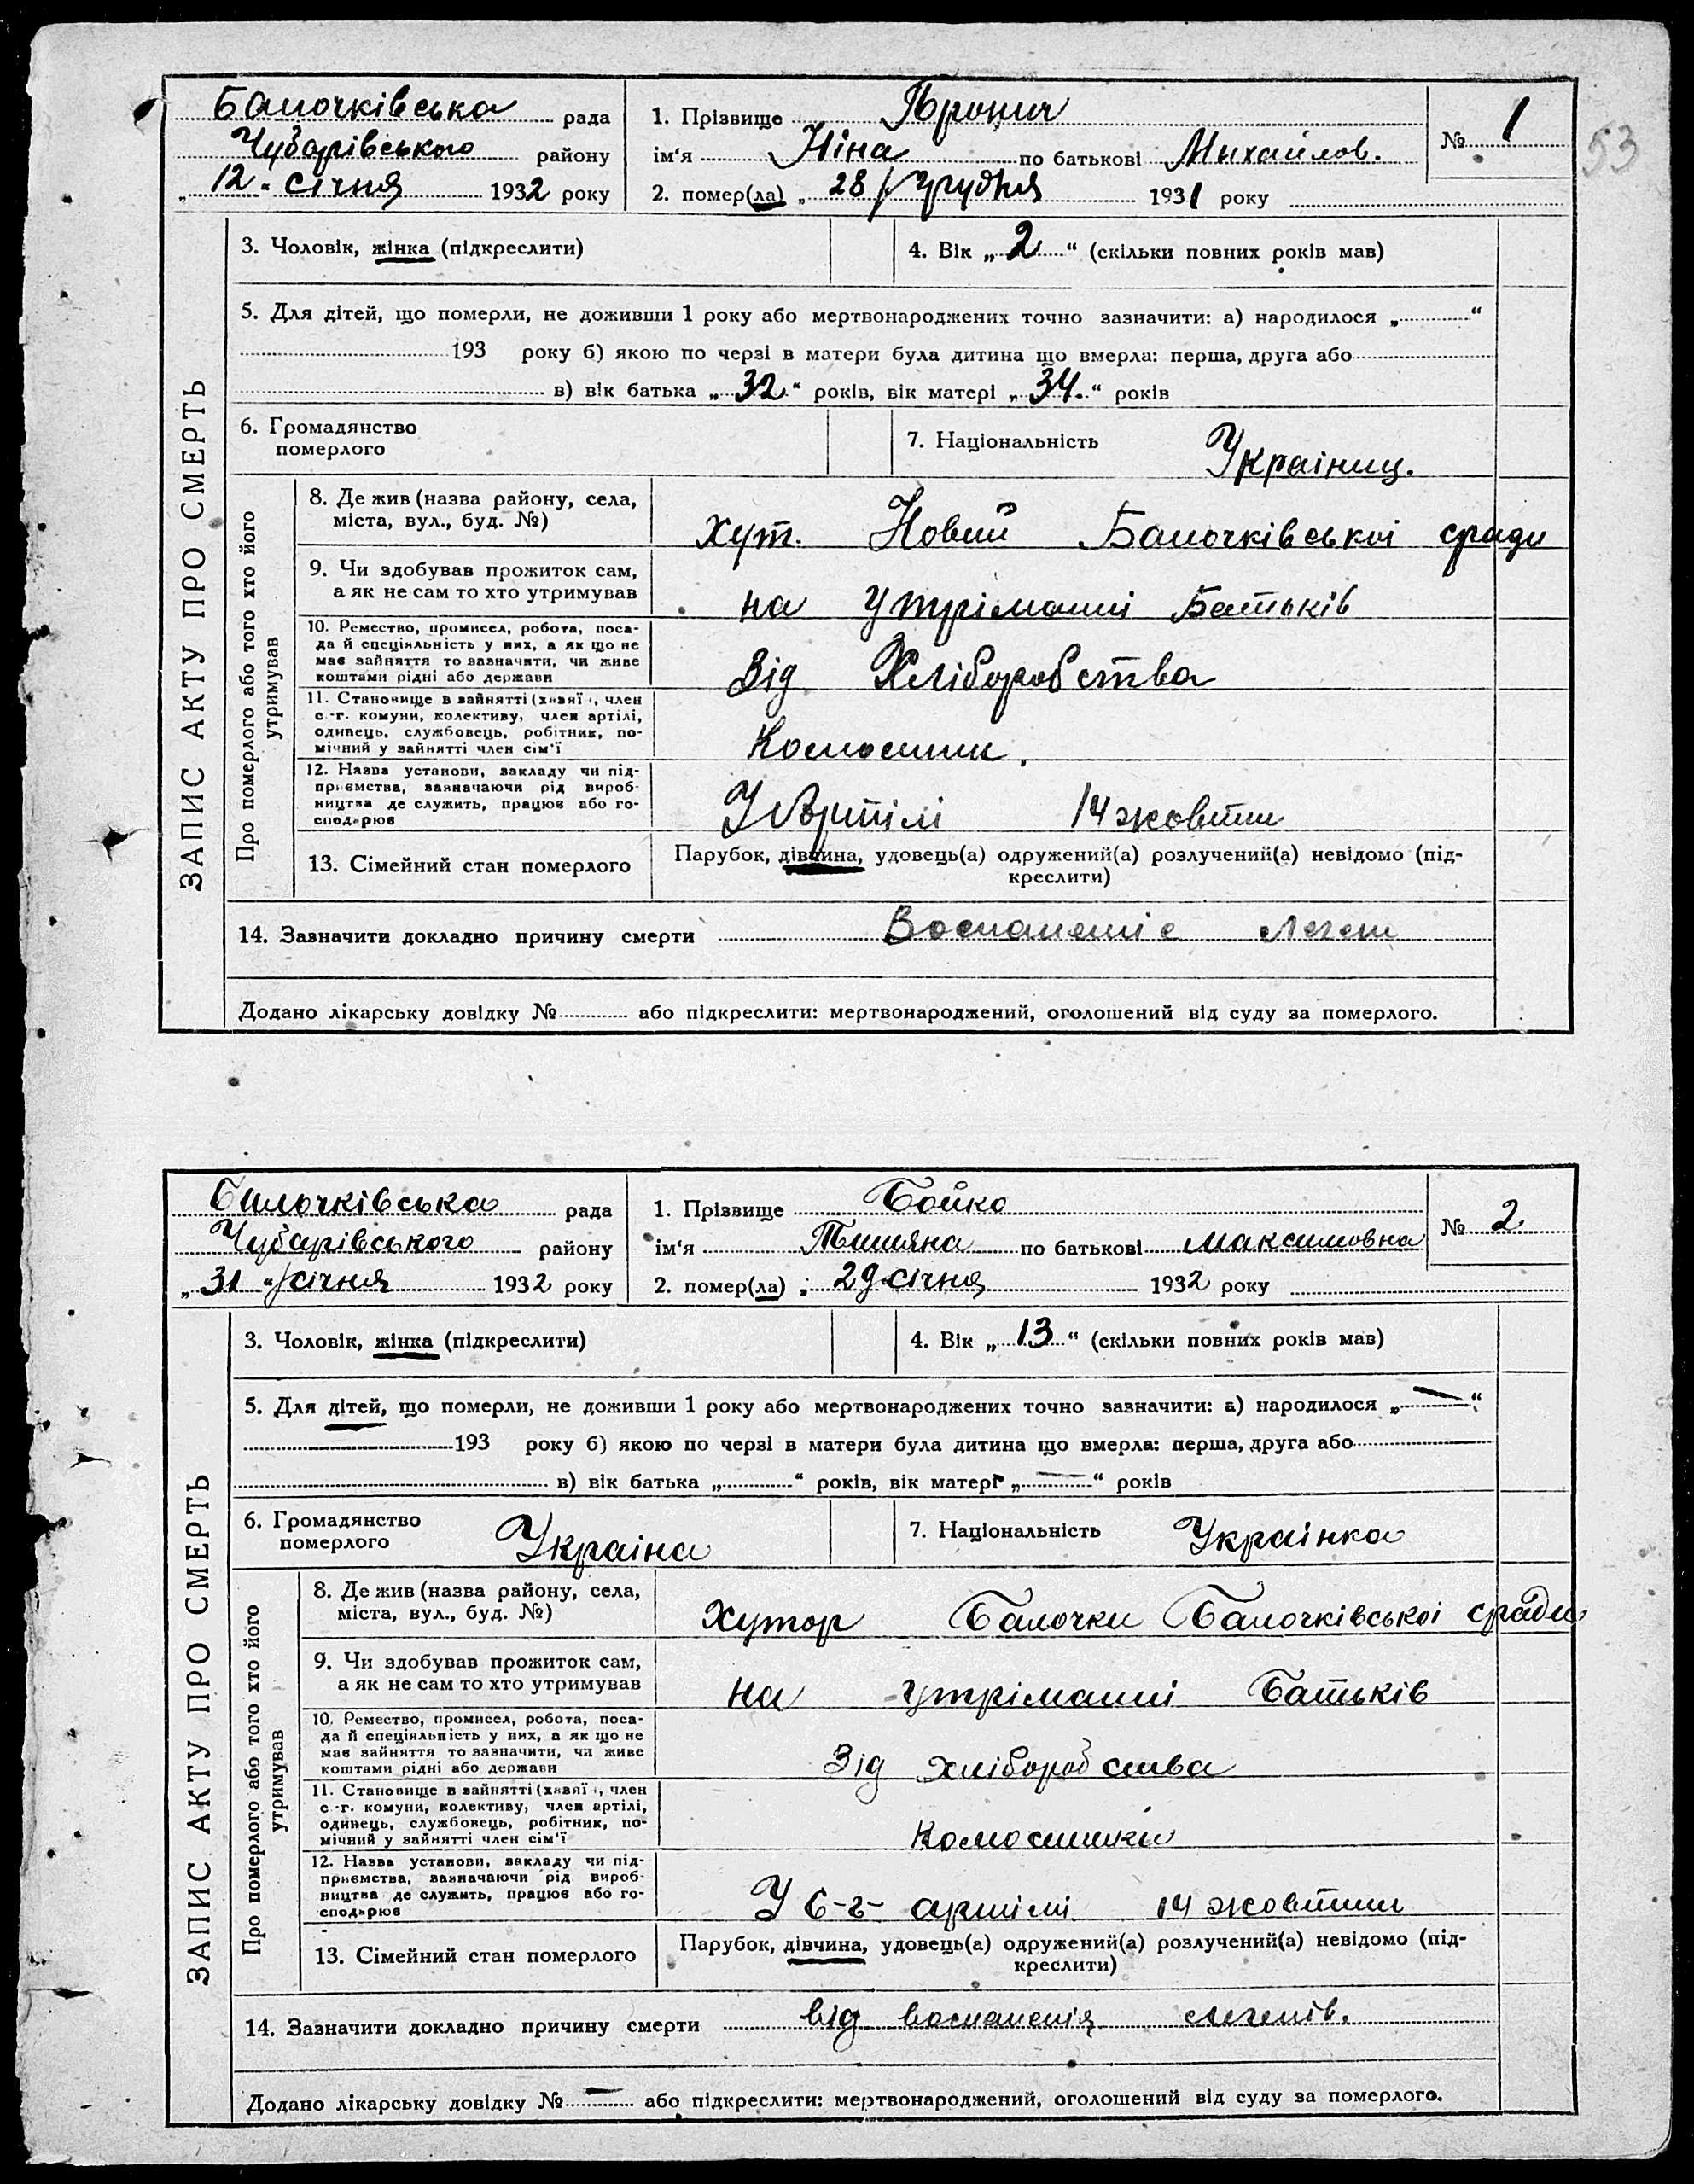 Балочківська рада
Чубарівського району
„12“ січня 1932 року
1. Прізвище
ім'я Ніна по батькові Михайлов.
2. помер(ла) „28 грудня 1931 року
№ 1
53
ЗАПИС АКТУ ПРО СМЕРТЬ
3. Чоловік, жінка (підкреслити)
4. Вік „2“ (скільки повних років мав)
5. Для дітей, що померли, не доживши 1 року або мертвонароджених точно зазначити: а) народилося „ “
193 року б) якою по черзі в матери була дитина що вмерла: перша, друга або
в) вік батька „32“ років, вік матері „34.“ років
6. Громадянство
померлого
7. Національність Україниц.
Про померлого або того хто його
утримував
8. Де жив (назва району, села,
міста, вул., буд. №)
хут. Новий Балочківськоі сради
9. Чи здобував прожиток сам,
а як не сам то хто утримував
на утріманні Батьків
10. Ремество, промисел, робота, поса-
да й спеціяльність у них, а як що не
має зайняття то зазначити, чи живе
коштами рідні або держави
Від Хліборобства
11. Становище в зайнятті (хазяї , член
с.-г. комуни, колективу, член артілі,
одинець, службовець, робітник, по-
мічний у зайнятті член сім'ї
12. Назва установи, закладу чи під-
приємства, зазначаючи рід вироб-
ництва де служить, працює або го-
сподарює
У Артілі 14 жовтни
13. Сімейний стан померлого
Парубок, дівчина, удовець(а) одружений(а) розлучений(а) невідомо (під-
креслити)
14. Зазначити докладно причину смерти Воспаленіе Леген
Додано лікарську довідку № або підкреслити: мертвонароджений, оголошений від суду за померлого.
Балочківська рада
Чубарівського району
„31“ січня 1932 року
1. Прізвище Бойко
ім'я Тетяна по батькові Максимовна
2. помер(ла) „29 січня 1932 року
№ 2
ЗАПИС АКТУ ПРО СМЕРТЬ
3. Чоловік, жінка (підкреслити)
4. Вік „13“ (скільки повних років мав)
5. Для дітей, що померли, не доживши 1 року або мертвонароджених точно зазначити: а) народилося „—“
193 року б) якою по черзі в матери була дитина що вмерла: перша, друга або
в) вік батька „ “ років, вік матері „—“ років
6. Громадянство
померлого
Україна
7. Національність Українка
Про померлого або того хто його
утримував
8. Де жив (назва району, села,
міста, вул., буд. №)
хутор Балочки Балочківськоі сради
9. Чи здобував прожиток сам,
а як не сам то хто утримував
на утріманні Батьків
10. Ремество, промисел, робота, поса-
да й спеціяльність у них, а як що не
має зайняття то зазначити, чи живе
коштами рідні або держави
Від хліборобства
11. Становище в зайнятті (хазяї , член
с.-г. комуни, колективу, член артілі,
одинець, службовець, робітник, по-
мічний у зайнятті член сім'ї
12. Назва установи, закладу чи під-
приємства, зазначаючи рід вироб-
ництва де служить, працює або го-
сподарює
У С-г- артілі 14 жовтни
13. Сімейний стан померлого
Парубок, дівчина, удовець(а) одружений(а) розлучений(а) невідомо (під-
креслити)
14. Зазначити докладно причину смерти від воспаленія легенів.
Додано лікарську довідку №— або підкреслити: мертвонароджений, оголошений від суду за померлого.